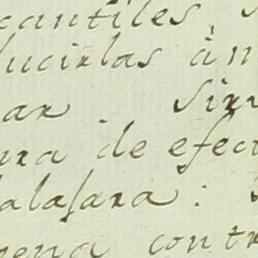 cantiles,
lucirlas àn
ar Sirv
ara de efect
dalaxara:
pena contr